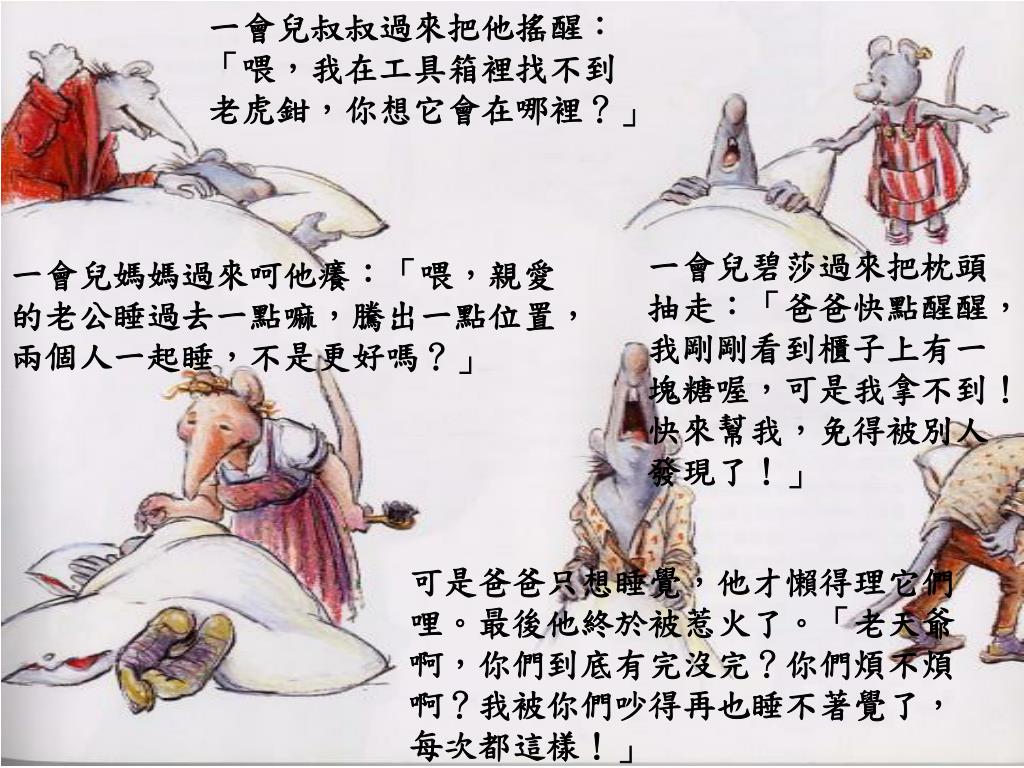 一會兒叔叔過來把他搖醒：
「喂，我在工具箱裡找不到
老虎鉗，你想它會在哪裡？」
一會兒媽媽過來呵他癢：「喂，親愛
的老公睡過去一點嘛，騰出一點位置，
兩個人一起睡，不是更好嗎？」
一會兒碧莎過來把枕頭
抽走：「爸爸快點醒醒，
我剛剛看到櫃子上有一
塊糖喔，可是我拿不到！
快來幫我，免得被別人
發現了！」
可是爸爸只想睡覺，他才懶得理它們
哩。最後他終於被惹火了。「老天爺
啊，你們到底有完沒完？你們煩不煩
啊？我被你們吵得再也睡不著覺了，
每次都這樣！」